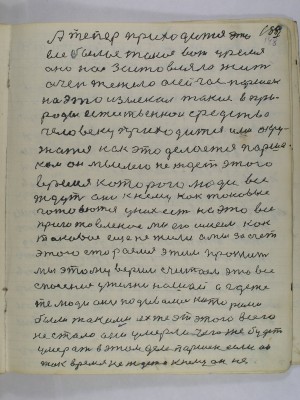 А теперь приходится это
все было такое вот время
оно нас заставляло жить
очен тежело а сейчас паршек
на это излекал такие в при-
роды естественное средство
человеку приходится им окру-
жатся как это делается парше-
ком он мылшо не ждет этого
время которого люди все
ждут они к нему как таковые
готовются у них ест на это все
приготовленое мы его имеем как
таковое еще не жили а мы за счет
этого стораемся этим прожит
мы этому верим считаем это все
спасения у жизни нашей а где же
те люди они подевалис которыми
были такими их же от этого всего
не стало они умерли и также будут
умерат в этом деле паршек если
так время не ждет к нему он не